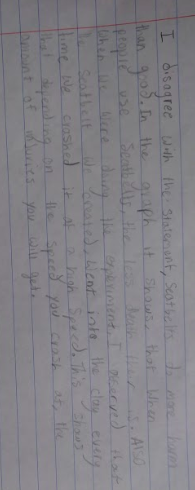 I disagree with the statement, Seatbelts do more harm
than good. In the graph it shows that when
people use Seatbelts, the less harm there is. Also
when we were doing the experiment, I observed that
the Seatbelt we created, went into the clay every
time we crashed it at a high speed. This shows
that depending on the speed you crash at, the
amount of injuries you will get.